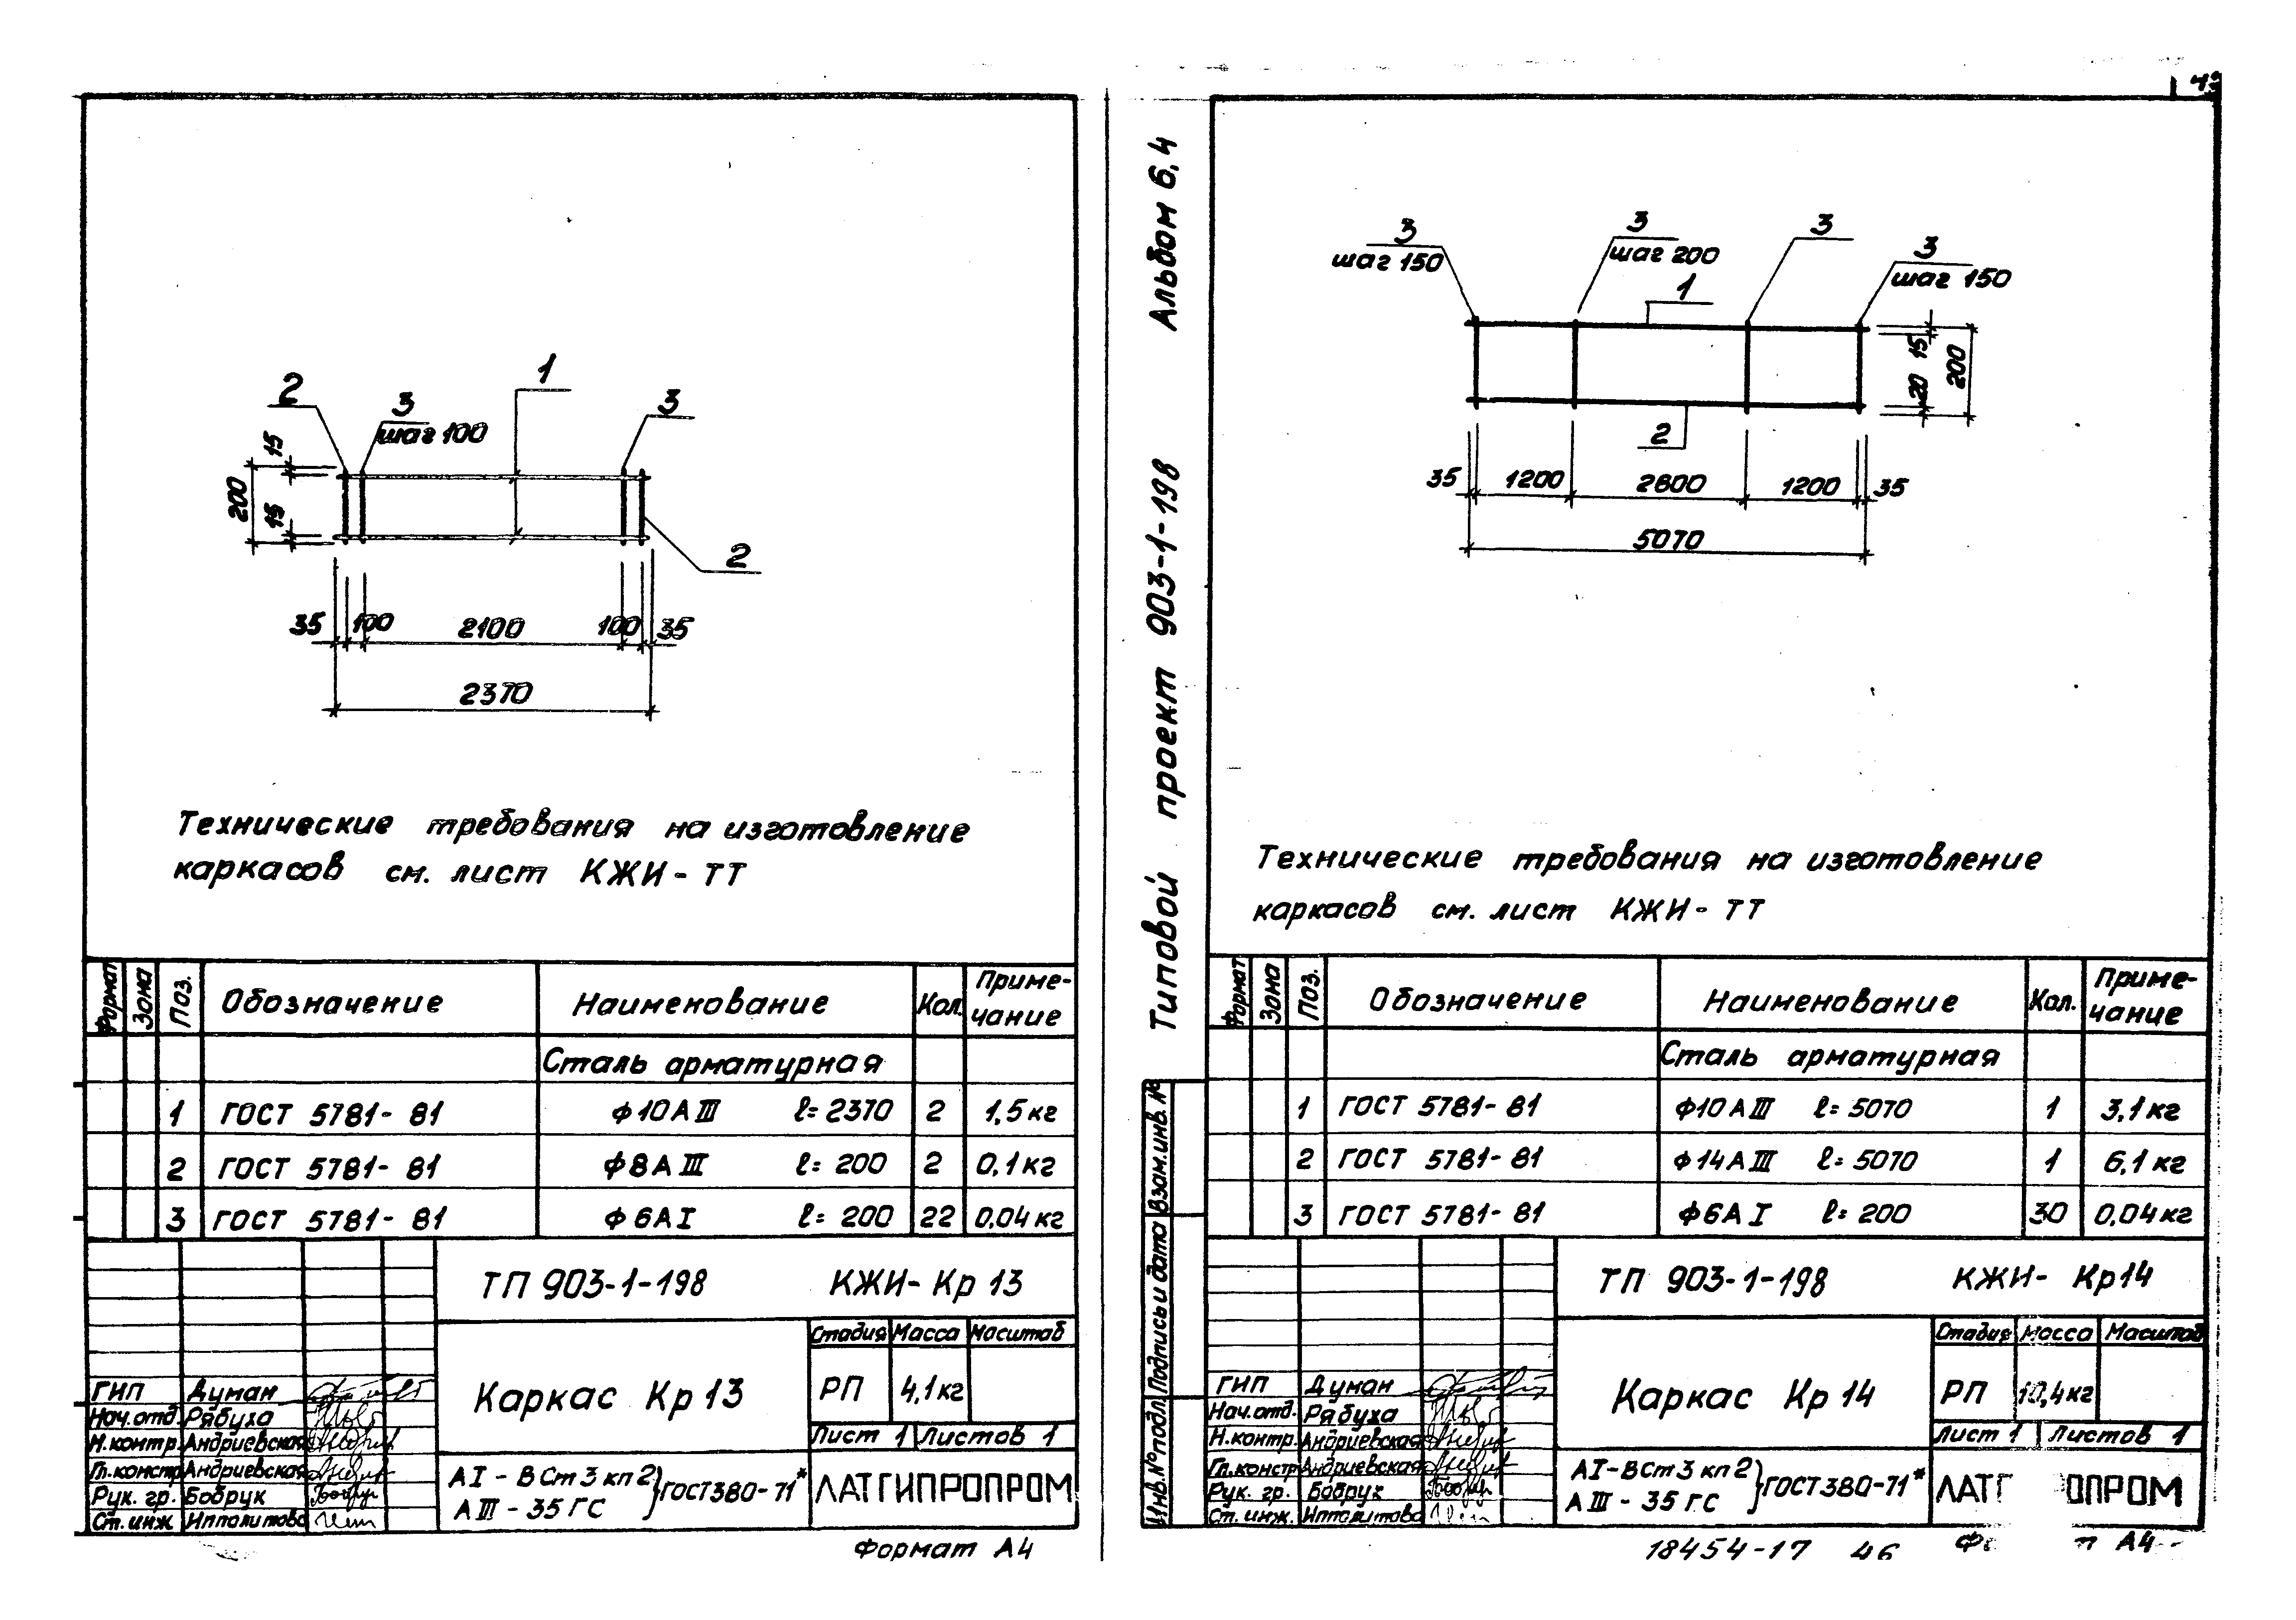 2
3
шаг 100
1
3
2
15
200
15
35 100 2100 100 35
2370
Технические требования на изготовление
каркасов см. лист КЖИ-ТТ
Формат Зона Поз. Обозначение Наименование Кол. Приме-
чание
Сталь арматурная
1 ГОСТ 5781-81 ф10АIII ℓ=2370 2 1,5кг
2 ГОСТ 5781-81 ф8АIII ℓ=200 2 0,1кг
3 ГОСТ 5781-81 ф6АI ℓ=200 22 0,04кг
ТП 903-1-198 КЖИ-Кр 13
Каркас Кр 13
Стадия Масса Масштаб
РП 4,1кг
Лист 1 Листов 1
ГИП Думан
Нач.отд. Рябуха
Н.контр. Андриевская
Гл.констр Андриевская
Рук. гр. Бобрук
Ст.инж. Ипполитова
АI-ВСт3кп2
АIII-35ГС
}ГОСТ380-71*
ЛАТГИПРОПРОМ
Формат А4
Альбом 6.4
Типовой проект 903-1-198
Взам.инв.№
Подпись и дата
Инв.№подл.
3
шаг 150
3
шаг 200
1
3
3
шаг 150
2
15
20
200
35 1200 2600 1200 35
5070
Технические требования на изготовление
каркасов см. лист КЖИ-ТТ
Формат Зона Поз. Обозначение Наименование Кол. Приме-
чание
Сталь арматурная
1 ГОСТ 5781-81 ф10АIII ℓ=5070 1 3,1кг
2 ГОСТ 5781-81 ф14АIII ℓ=5070 1 6,1кг
3 ГОСТ 5781-81 ф6АI ℓ=200 30 0,04кг
ТП 903-1-198 КЖИ-Кр14
Каркас Кр 14
Стадия Масса Масштаб
РП 10,4кг
Лист 1 Листов 1
ГИП Думан
Нач.отд. Рябуха
Н.контр. Андриевская
Гл.констр Андриевская
Рук. гр. Бобрук
Ст.инж. Ипполитова
АI-ВСт3кп2
АIII-35ГС
}ГОСТ380-71*
ЛАТГ ОПРОМ
18454-17 46
А4